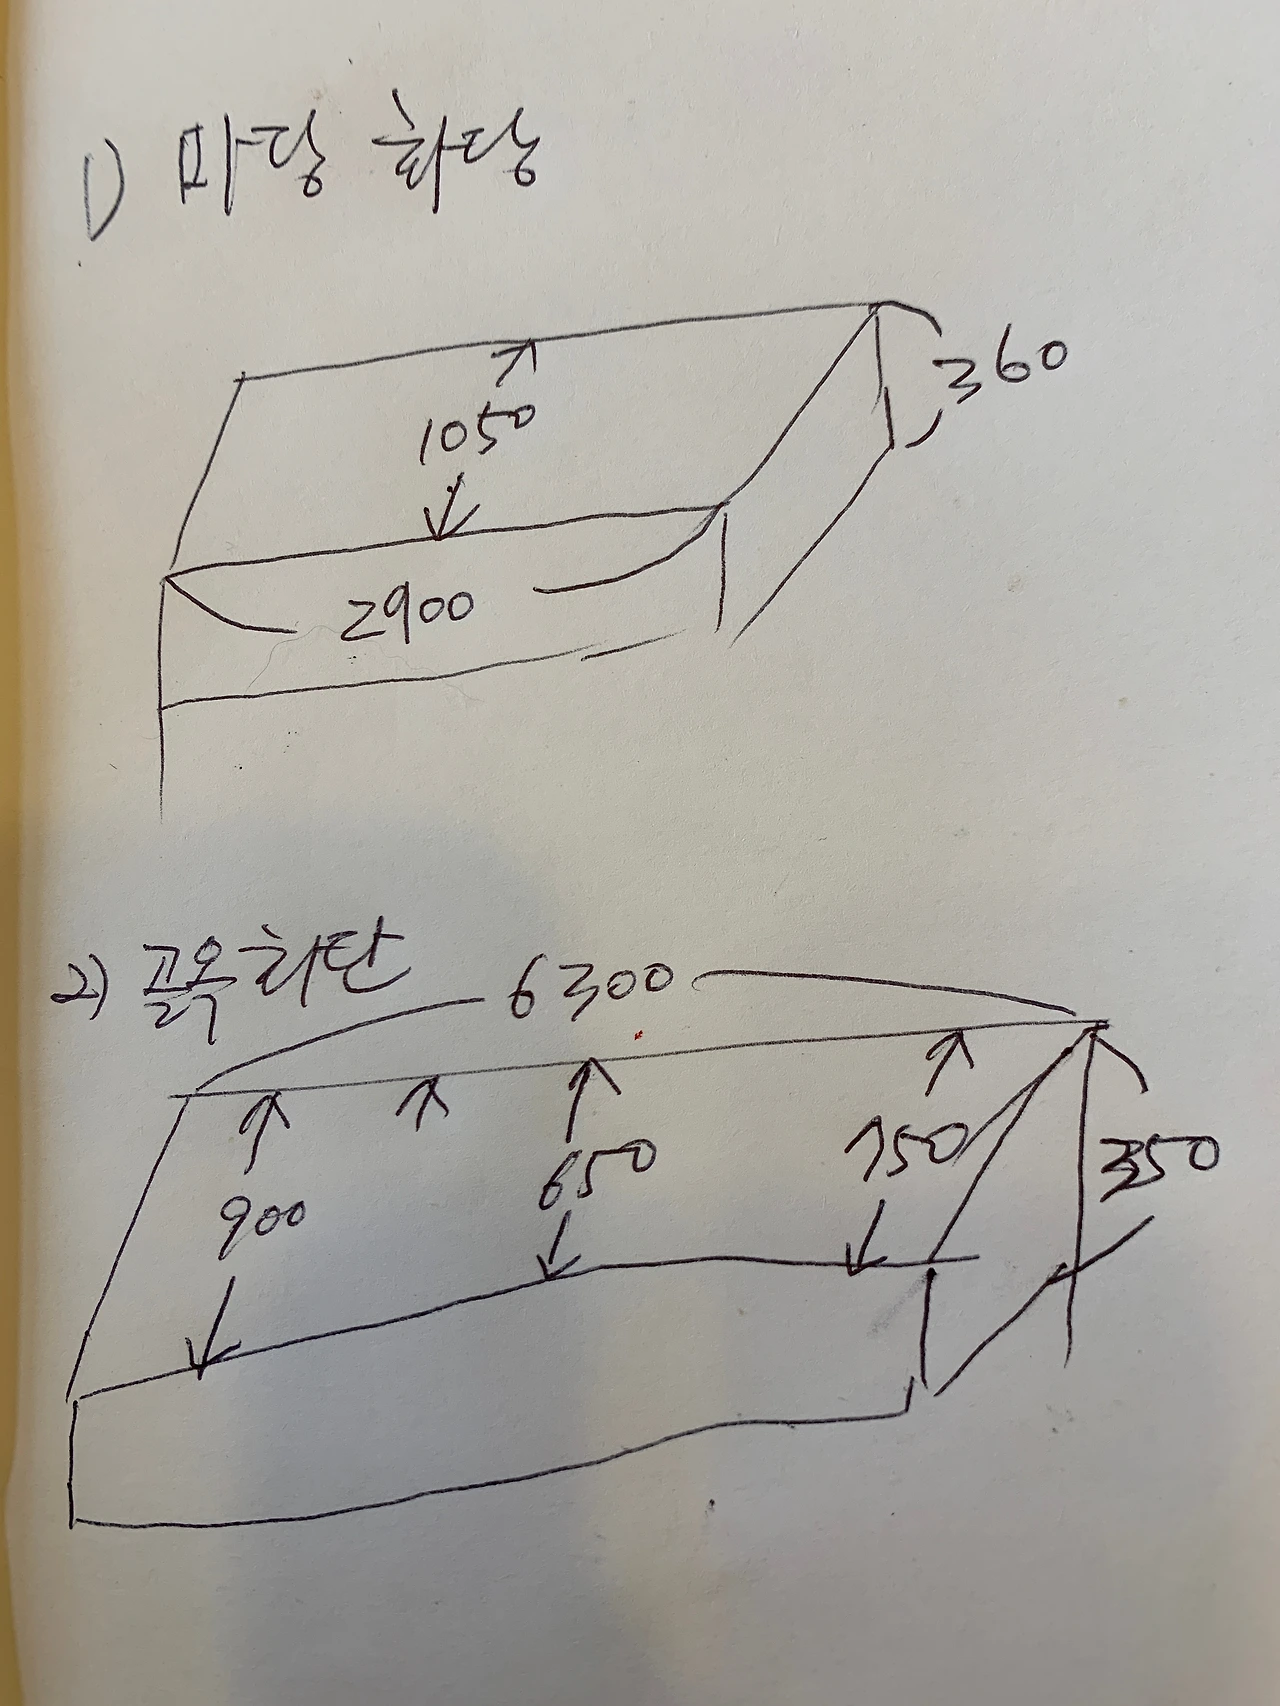 1) 마당 화당
360
1050
2900
2) 골목화단
6300
900
650
750
350